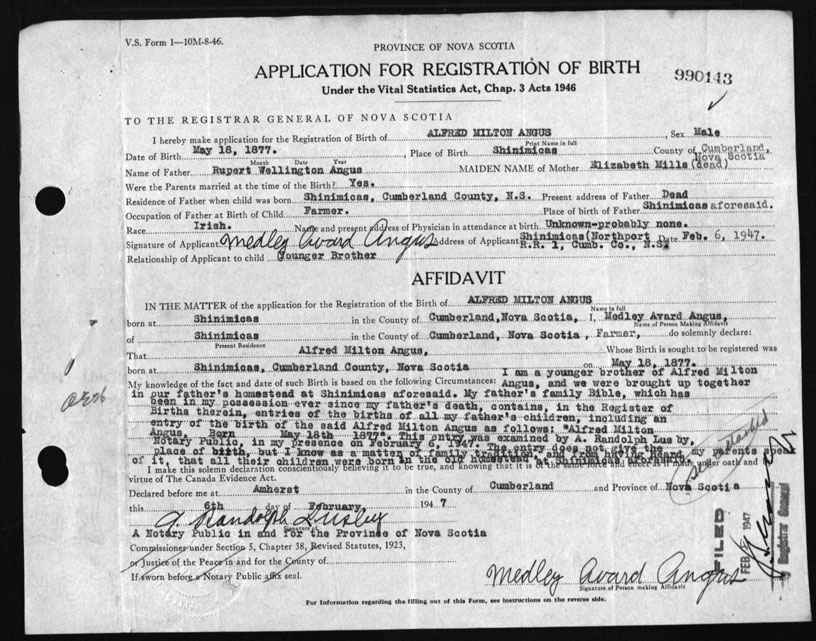 V.S. Form 1—10M-8-46.
PROVINCE OF NOVA SCOTIA
APPLICATION FOR REGISTRATION OF BIRTH
990143
Under the Vital Statistics Act, Chap. 3 Acts 1946
TO THE REGISTRAR GENERAL OF NOVA SCOTIA
I hereby make application for the Registration of Birth of ALFRED MILTON ANGUS Sex Male
Print Name in full
Date of Birth May 18, 1877. , Place of Birth Shinimicas County of Cumberland, Nova Scotia
Month Date Year
Name of Father Rupert Wellington Angus MAIDEN NAME of Mother Elizabeth Mills (dead)
Were the Parents married at the time of the Birth? Yes.
Residence of Father when child was born Shinimicas, Cumberland County, N.S. Present address of Father Dead
Occupation of Father at Birth of Child Farmer. Place of birth of Father Shinimicas aforesaid.
Race Irish. Name and present address of Physician in attendance at birth Unknown-probably none.
Signature of Applicant Medley Avard Angus Address of Applicant Shinimicas (Northport R.R. 1, Cumb. Co., N.S. Date Feb. 6, 1947.
Relationship of Applicant to child Younger Brother
AFFIDAVIT
IN THE MATTER of the application for the Registration of the Birth of ALFRED MILTON ANGUS
Name in full
born at Shinimicas in the County of Cumberland, Nova Scotia, I, Medley Avard Angus,
Name of Person Making Affidavit
of Shinimicas in the County of Cumberland, Nova Scotia, Farmer, do solemnly declare:
Present Residence
That Alfred Milton Angus, Whose Birth is sought to be registered was
born at Shinimicas, Cumberland County, Nova Scotia on May 18, 1877.
My knowledge of the fact and date of such Birth is based on the following Circumstances: I am a younger brother of Alfred Milton
Angus, and we were brought up together
in our father's homestead at Shinimicas aforesaid. My father's family Bible, which has
been in my possession ever since my father's death, contains, in the Register of
Births therein, entries of the births of all my father's children, including an
entry of the birth of the said Alfred Milton Angus as follows: "Alfred Milton
Angus, Born May 18th 1877". This entry was examined by A. Randolph Lusby,
Notary Public, in my presence on February 6, 1947. The entry does not give the
place of birth, but I know as a matter of family tradition, and from having heard my parents speak
of it, that all their children were born in the old homestead at Shinimicas aforesaid.
I make this solemn declaration conscientiously believing it to be true, and knowing that it is of the same force and effect as if made under oath and
virtue of The Canada Evidence Act.
Declared before me at Amherst in the County of Cumberland and Province of Nova Scotia
this 6th day of February, 1947
A. Randolph Lusby
Signature of
A Notary Public in and for the Province of Nova Scotia
Commissioner under Section 5, Chapter 38, Revised Statutes, 1923,
or Justice of the Peace in and for the County of
If sworn before a Notary Public affix seal.
Medley Avard Angus
Signature of Person making Affidavit
For Information regarding the filling out of this Form, see instructions on the reverse side.
FILED
FEB 1947
Registrar General